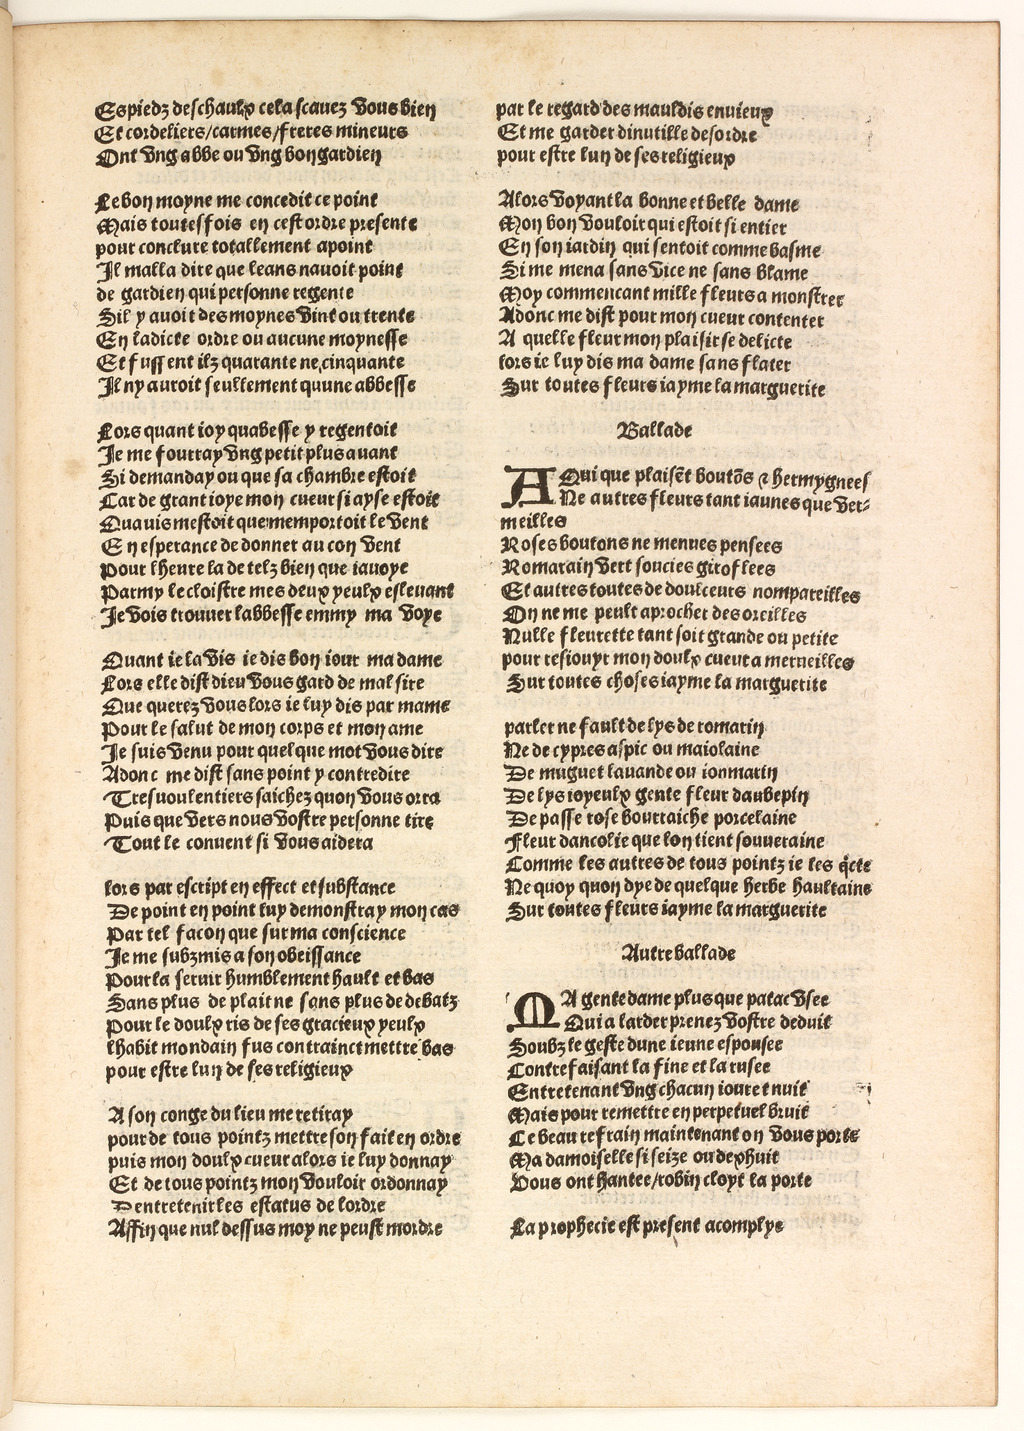 Espiedz deschaulx cela scauez vous bien
Et cordeliers/carmes/freres mineurs
Ont vng abbe ou vng bon gardien

Le bon moyne me concedit ce point
Mais toutesfois en cest ordre presente
pour conclure totallement apoint
Il malla dire que leans nauoit point
de gardien qui personne regente
Sil y auoit des moynes vint ou trente
En ladicte ordre ou aucune moynesse
Et fussent ilz quarante ne cinquante
Il ny auroit seullement quune abbesse

Lors quant ioy quabesse y regentoit
Je me fourray vng petit plus auant
Si demanday ou que sa chambre estoit
Car de grant ioye mon cueur si ayse estoit
Quauis mestoit que memportoit le vent
En esperance de donner au con vent
Pour lheure la de telz bien que iauoye
Parmy le cloistre mes deux yeulx esleuant
Je vois trouuer labbesse emmy ma voye

Quant ie la vis ie dis bon iour ma dame
Lors elle dist dieu vous gard de mal sire
Que querez vous lors ie luy dis par mame
Pour le salut de mon corps et mon ame
Je suis venu pour quelque mot vous dire
Adonc me dist sans point y contredire
Tresuoulentiers saichez quon vous orra
Puis que vers nous vostre personne tire
Tout le conuent si vous aidera

lors par escript en effect et substance
De point en point luy demonstray mon cas
Par tel facon que sur ma conscience
Je me subzmis a son obeissance
Pour la seruir humblement hault et bas
Sans plus de plait ne sans plus de debatz
Pour le doulx ris de ses gracieux yeulx
lhabit mondain fus contrainct mettre bas
pour estre lun de ses religieux

A son conge du lieu me retiray
pour de tous pointz mettre son fait en ordre
puis mon doulx cueur alors ie luy donnay
Et de tous pointz mon vouloir ordonnay
Dentretenir les estatus de lordre
Affin que nul dessus moy ne peust mordre
par le regard des mauldis enuieux
Et me garder dinutille desordre
pour estre lun de ses religieux

Alors voyant la bonne et belle dame
Mon bon vouloir qui estoit si entier
En son iardin qui sentoit comme basme
Si me mena sans vice ne sans blame
Moy commencant mille fleurs a monstrer
Adonc me dist pour mon cueur contenter
A quelle fleur mon plaisir se delicte
lors ie luy dis ma dame sans flater
Sur toutes fleurs iayme la marguerite

Ballade

A Qui que plaisẽt boutõs ⁊ hermygnees
Ne autres fleurs tant iaunes que ver-
meilles
Roses boutons ne menues pensees
Romarain vert soucies giroflees
Et autres toutes de doulceurs nompareilles
On ne me peult aprocher des oreilles
Nulle fleurette tant soit grande ou petite
pour resiouyr mon doulx cueur a merueilles
Sur toutes choses iayme la marguerite

parler ne fault de lys de romarin
Ne de cypres aspic ou maiolaine
De muguet lauande ou ionmarin
De lys ioyeulx gente fleur daubepin
De passe rose bourraiche porcelaine
Fleur dancolie que lon tient souueraine
Comme les autres de tous pointz ie les q̃cte
Ne quoy quon dye de quelque herbe haultaine
Sur toutes fleurs iayme la marguerite

Autre ballade

MA gente dame plus que patac vsee
Qui a larder prenez vostre deduit
Soubz le geste dune ieune espousee
Contrefaisant la fine et la rusee
Entretenant vng chacun iour et nuit
Mais pour remettre en perpetuel bruit
Ce beau refrain maintenant on vous porte
Ma damoiselle si seize ou dexhuit
Vous ont hantee/robin cloyt la porte

La prophecie est present acomplye